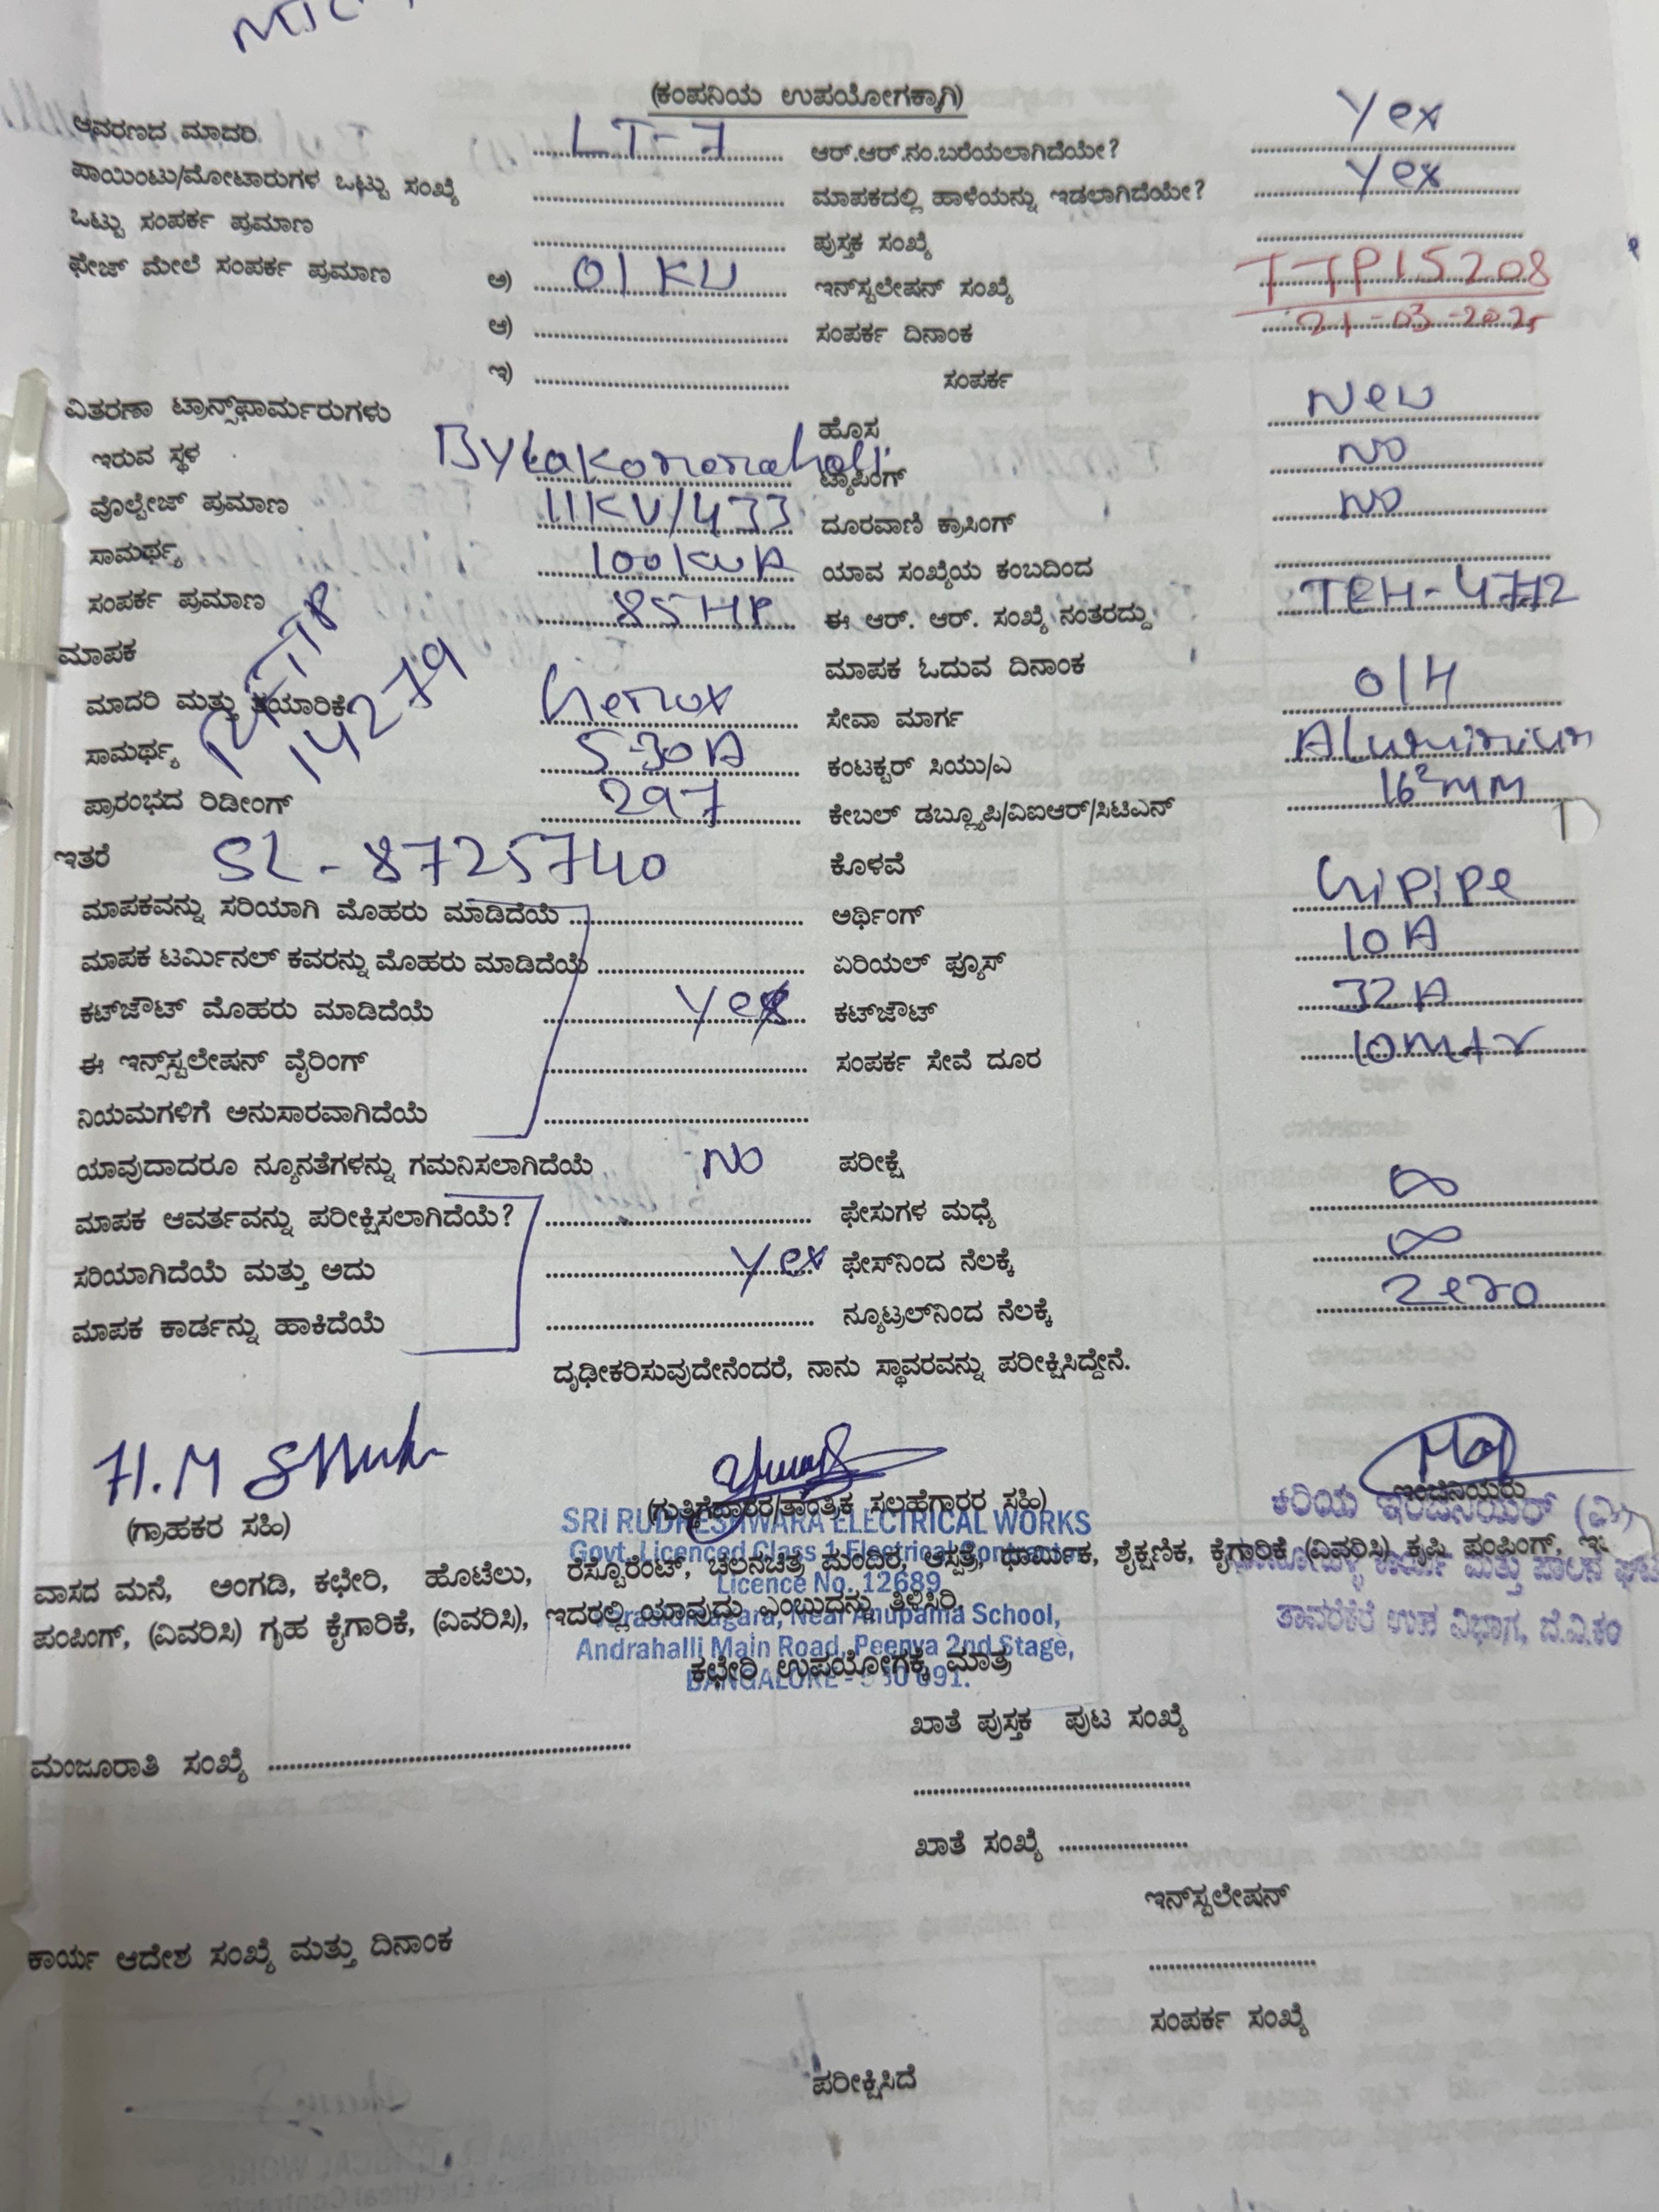 (ಕಂಪನಿಯ ಉಪಯೋಗಕ್ಕಾಗಿ)
ಆವರಣದ ಮಾದರಿ LT-7 ಆರ್.ಆರ್.ನಂ.ಬರೆಯಲಾಗಿದೆಯೇ? Yes
ಪಾಯಿಂಟು/ಮೋಟಾರುಗಳ ಒಟ್ಟು ಸಂಖ್ಯೆ ಮಾಪಕದಲ್ಲಿ ಹಾಳೆಯನ್ನು ಇಡಲಾಗಿದೆಯೇ? Yes
ಒಟ್ಟು ಸಂಪರ್ಕ ಪ್ರಮಾಣ ಪುಸ್ತಕ ಸಂಖ್ಯೆ
ಫೇಜ್ ಮೇಲೆ ಸಂಪರ್ಕ ಪ್ರಮಾಣ ಅ) 01 KW ಇನ್‌ಸ್ಟಲೇಷನ್ ಸಂಖ್ಯೆ TTP15208
ಆ) ಸಂಪರ್ಕ ದಿನಾಂಕ 21-03-2025
ಇ) ಸಂಪರ್ಕ
ವಿತರಣಾ ಟ್ರಾನ್ಸ್‌ಫಾರ್ಮರುಗಳು ಹೊಸ New
ಇರುವ ಸ್ಥಳ ಟ್ಯಾಪಿಂಗ್ NO
ವೊಲ್ಟೇಜ್ ಪ್ರಮಾಣ 11KV/433 ದೂರವಾಣಿ ಕ್ರಾಸಿಂಗ್ NO
ಸಾಮರ್ಥ್ಯ 100KVA ಯಾವ ಸಂಖ್ಯೆಯ ಕಂಬದಿಂದ
ಸಂಪರ್ಕ ಪ್ರಮಾಣ 85HP ಈ ಆರ್. ಆರ್. ಸಂಖ್ಯೆ ನಂತರದ್ದು
ಮಾಪಕ ಮಾಪಕ ಓದುವ ದಿನಾಂಕ
14279
ಮಾದರಿ ಮತ್ತು ತಯಾರಿಕೆ Genus ಸೇವಾ ಮಾರ್ಗ O/H
ಸಾಮರ್ಥ್ಯ 5-30A ಕಂಟಕ್ಟರ್ ಸಿಯು/ಎ Aluminium
ಪ್ರಾರಂಭದ ರಿಡೀಂಗ್ 297 ಕೇಬಲ್ ಡಬ್ಲ್ಯೂಪಿ/ವಿಐಆರ್/ಸಿಟಿಎನ್ 16²MM
ಇತರೆ SL-8725740 ಕೊಳವೆ
ಮಾಪಕವನ್ನು ಸರಿಯಾಗಿ ಮೊಹರು ಮಾಡಿದೆಯೆ ಅರ್ಥಿಂಗ್ GI PIPe
ಮಾಪಕ ಟರ್ಮಿನಲ್ ಕವರನ್ನು ಮೊಹರು ಮಾಡಿದೆಯೆ ಏರಿಯಲ್ ಫ್ಯೂಸ್ 10A
ಕಟ್‌ಜೌಟ್ ಮೊಹರು ಮಾಡಿದೆಯೆ Yes ಕಟ್‌ಜೌಟ್ 32A
ಈ ಇನ್ಸ್‌ಸ್ಟಲೇಷನ್ ವೈರಿಂಗ್ ಸಂಪರ್ಕ ಸೇವೆ ದೂರ 10mtr
ನಿಯಮಗಳಿಗೆ ಅನುಸಾರವಾಗಿದೆಯೆ
ಯಾವುದಾದರೂ ನ್ಯೂನತೆಗಳನ್ನು ಗಮನಿಸಲಾಗಿದೆಯೆ NO ಪರೀಕ್ಷೆ
ಮಾಪಕ ಆವರ್ತವನ್ನು ಪರೀಕ್ಷಿಸಲಾಗಿದೆಯೆ? ಫೇಸುಗಳ ಮಧ್ಯೆ ∞
ಸರಿಯಾಗಿದೆಯೆ ಮತ್ತು ಅದು Yes ಫೇಸ್‌ನಿಂದ ನೆಲಕ್ಕೆ ∞
ಮಾಪಕ ಕಾರ್ಡನ್ನು ಹಾಕಿದೆಯೆ ನ್ಯೂಟ್ರಲ್‌ನಿಂದ ನೆಲಕ್ಕೆ Zero
ದೃಢೀಕರಿಸುವುದೇನೆಂದರೆ, ನಾನು ಸ್ಥಾವರವನ್ನು ಪರೀಕ್ಷಿಸಿದ್ದೇನೆ.
H.M
(ಗ್ರಾಹಕರ ಸಹಿ) (ಗುತ್ತಿಗೆದಾರರ/ತಾಂತ್ರಿಕ ಸಲಹೆಗಾರರ ಸಹಿ) ಇಂಜಿನಿಯರು
SRI RUDRESHWARA ELECTRICAL WORKS
Govt. Licenced Class 1 Electrical Contractor
Licence No. 12689
Near Anupama School,
Andrahalli Main Road, Peenya 2nd Stage,
BANGALORE - 560 091.
ಕಿರಿಯ ಇಂಜಿನಿಯರ್
ತಾವರೆಕೆರೆ ಉಪ ವಿಭಾಗ, ಬೆ.ವಿ.ಕಂ
ವಾಸದ ಮನೆ, ಅಂಗಡಿ, ಕಛೇರಿ, ಹೊಟೆಲು, ರೆಸ್ಟೊರೆಂಟ್, ಚಲನಚಿತ್ರ ಮಂದಿರ, ಆಸ್ಪತ್ರೆ, ಧಾರ್ಮಿಕ, ಶೈಕ್ಷಣಿಕ, ಕೈಗಾರಿಕೆ (ವಿವರಿಸಿ) ಕೃಷಿ ಪಂಪಿಂಗ್,
ಪಂಪಿಂಗ್, (ವಿವರಿಸಿ) ಗೃಹ ಕೈಗಾರಿಕೆ, (ವಿವರಿಸಿ), ಇದರಲ್ಲಿ ಯಾವುದು ಎಂಬುದನ್ನು ತಿಳಿಸಿರಿ.
ಕಛೇರಿ ಉಪಯೋಗಕ್ಕೆ ಮಾತ್ರ
ಖಾತೆ ಪುಸ್ತಕ ಪುಟ ಸಂಖ್ಯೆ
ಮಂಜೂರಾತಿ ಸಂಖ್ಯೆ
ಖಾತೆ ಸಂಖ್ಯೆ
ಇನ್‌ಸ್ಟಲೇಷನ್
ಕಾರ್ಯ ಆದೇಶ ಸಂಖ್ಯೆ ಮತ್ತು ದಿನಾಂಕ
ಸಂಪರ್ಕ ಸಂಖ್ಯೆ
ಪರೀಕ್ಷಿಸಿದೆ